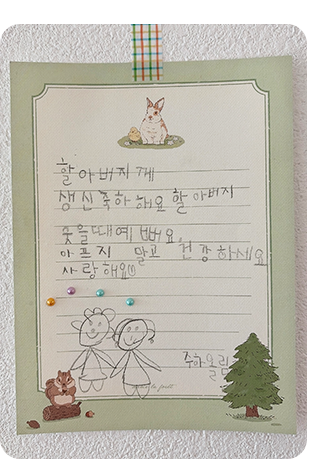 할아버지께
생신축하해요 할아버지
웃을때예뻐요
아프지 말고 건강하세요
사랑해요
주하올림